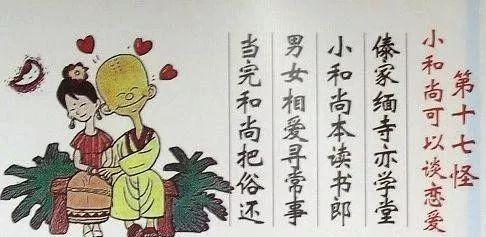 第十七怪
小和尚可以谈恋爱
傣家缅寺亦学堂
小和尚本读书郎
男女相爱寻常事
当完和尚把俗还